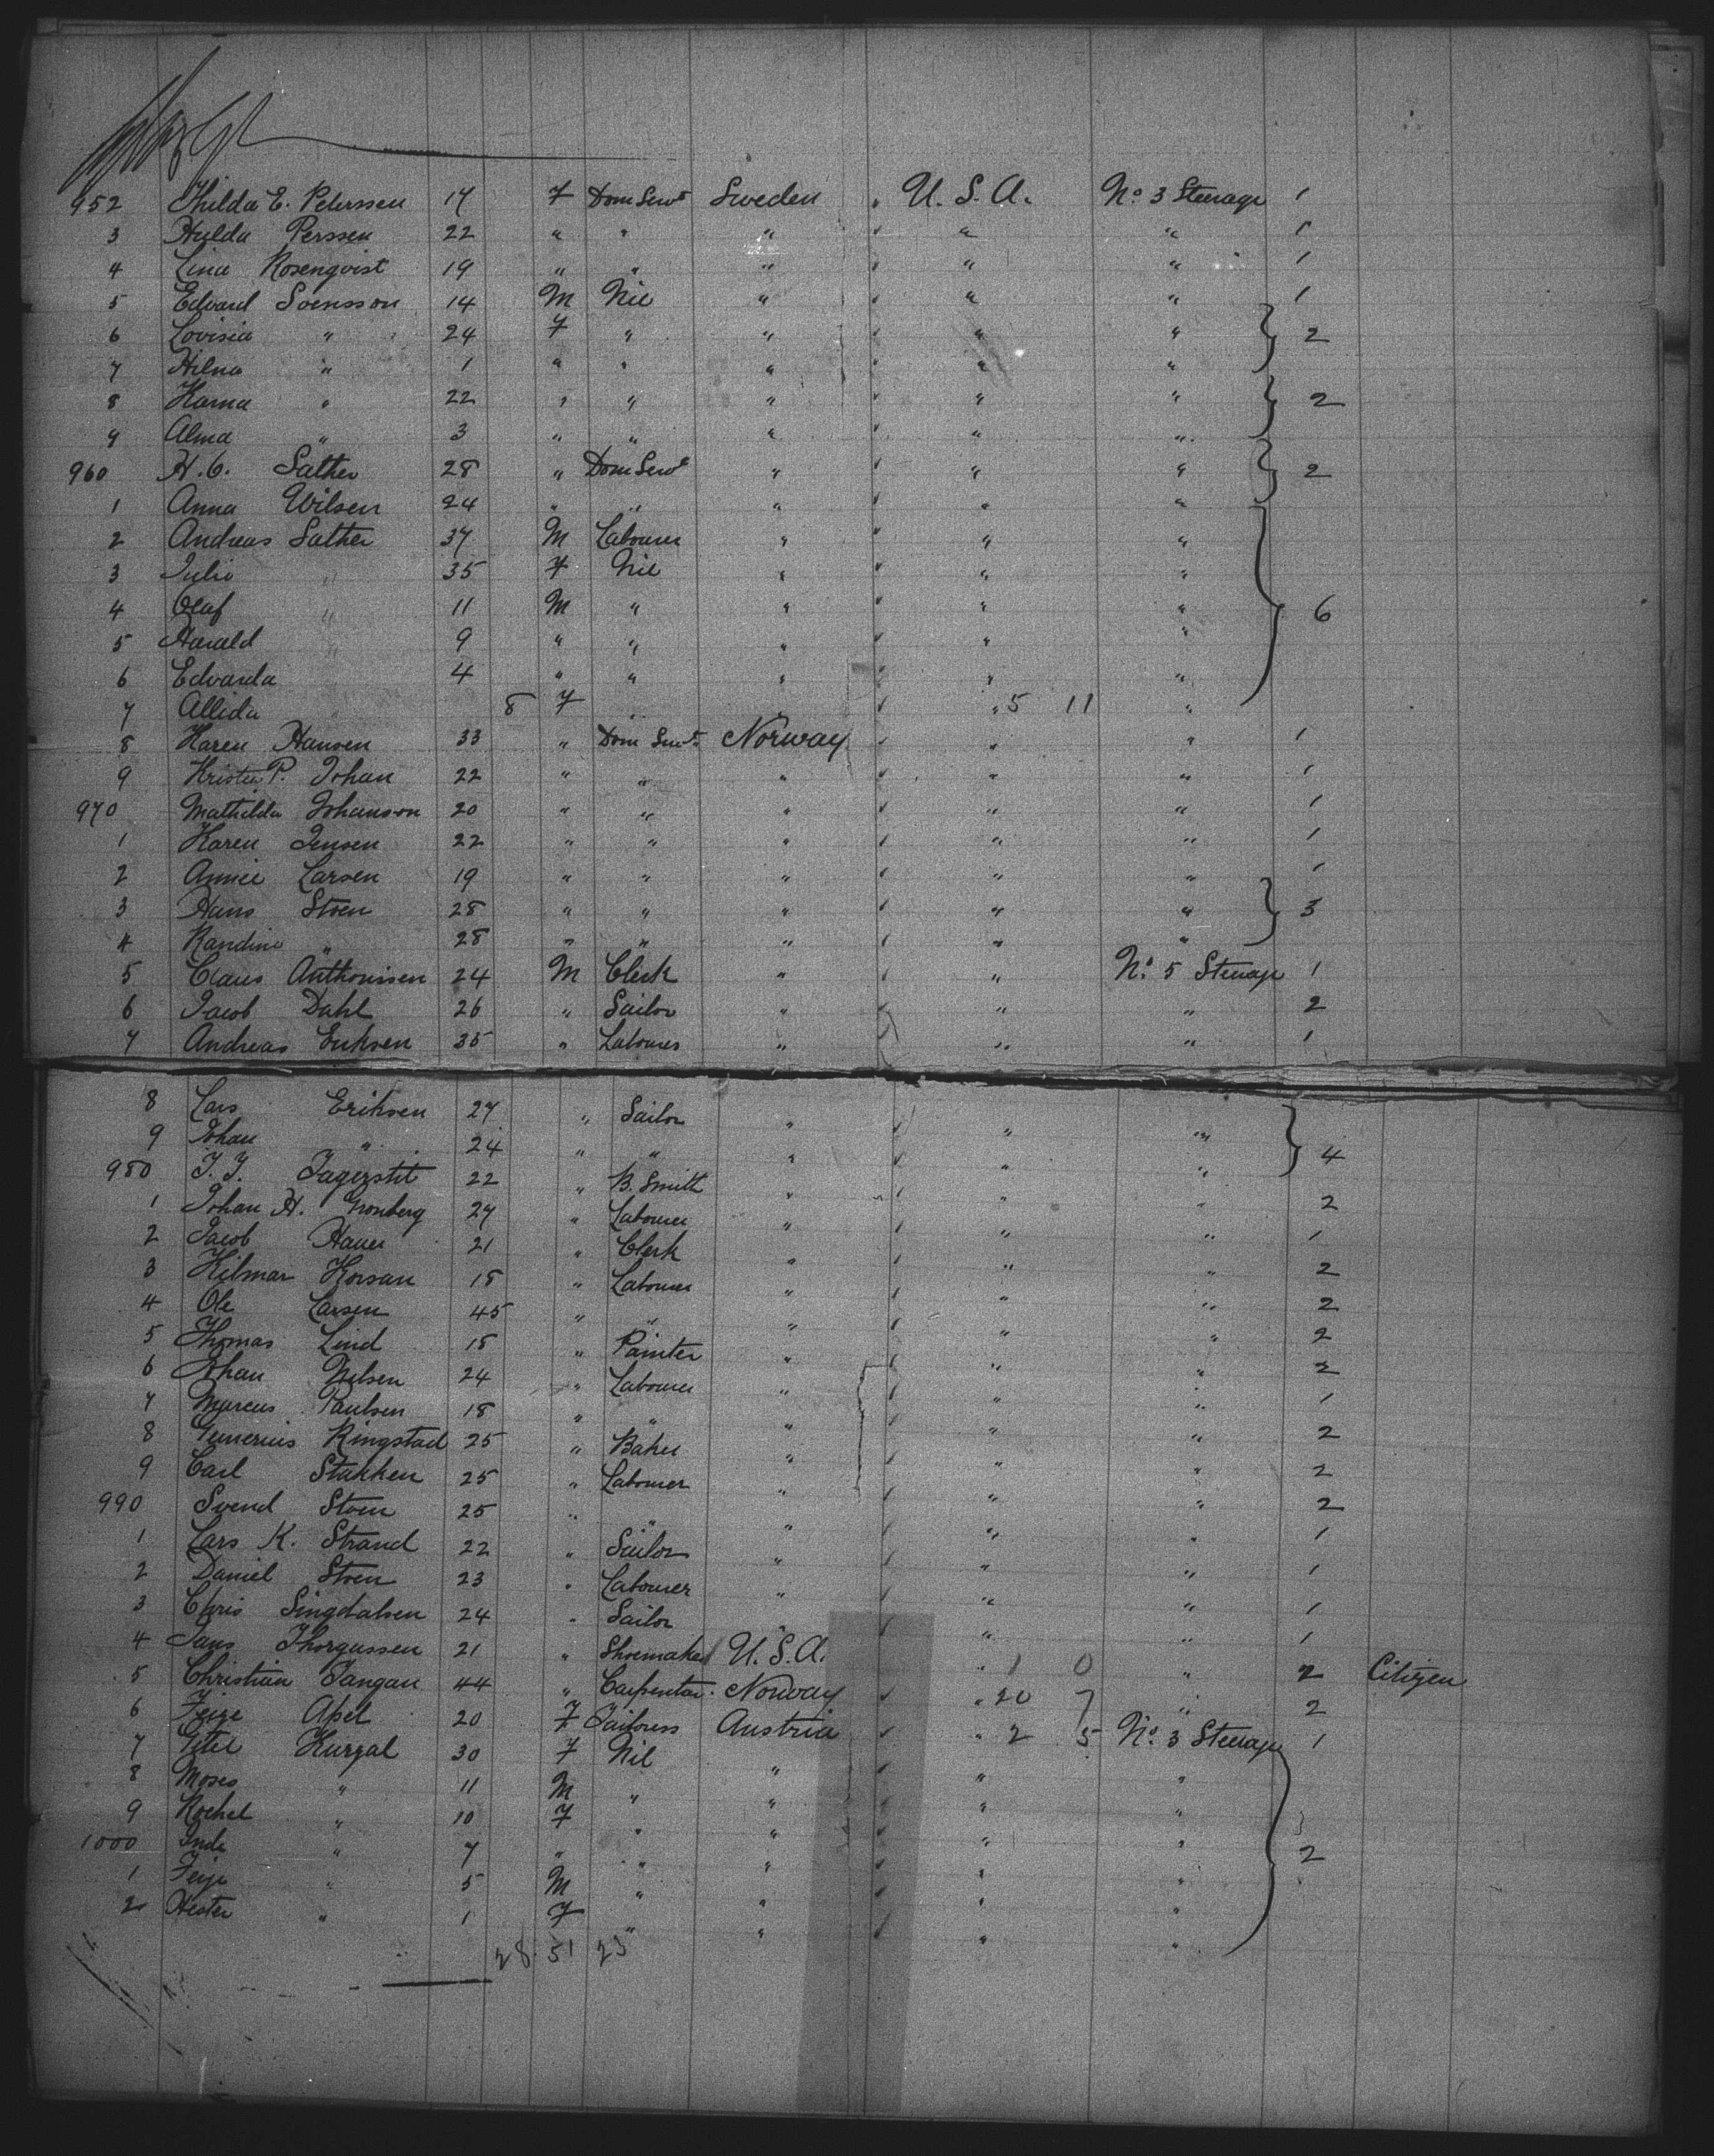 952 Thilda E. Peterssen 17 F Dom Servt Sweden " U.S.A. No 3 Steerage 1
3 Hulda Perssen 22 " " " " " 1
4 Lina Rosenqvist 19 " " " " " 1
5 Edvard Svensson 14 M Nil " " " 1
6 Lovisia " 24 F " " " " 2
7 Hilna " 1 " " " " "
8 Karna " 22 " " " " " 2
9 Alma " 3 " " " " "
960 H. C. Sather 28 " Dom Servt " " " 2
1 Anna Wilsen 24 " " " " "
2 Andreas Sather 37 M Labourer " " " 6
3 Julie " 35 F Nil " " "
4 Olaf " 11 M " " " "
5 Harald " 9 " " " " "
6 Edvarda " 4 " " " " "
7 Allida " 8 F " " " 5 11 "
8 Karen Hansen 33 " Dom Servt Norway " " 1
9 Kristen P. Johan 22 " " " " " 1
970 Mathilda Johanson 20 " " " " " 1
1 Karen Jensen 22 " " " " " 1
2 Annie Larsen 19 " " " " " 1
3 Hans Stoen 28 " " " " " 3
4 Randine " 28 " " " " "
5 Claus Anthonissen 24 M Clerk " " No 5 Steerage 1
6 Jacob Dahl 26 " Sailor " " " 2
7 Andreas Eriksen 35 " Labourer " " " 1
8 Lars Eriksen 27 " Sailor " " " 4
9 Johan " 24 " " " " "
980 J. J. Jagerstit 22 " B. Smith " " " 2
1 Johan H. Gronberg 27 " Labourer " " " 1
2 Jacob Hauer 21 " Clerk " " " 2
3 Hilmar Korsan 18 " Labourer " " " 2
4 Ole Larsen 45 " " " " " 2
5 Thomas Lind 18 " Painter " " " 2
6 Johan Nilsen 24 " Labourer " " " 1
7 Marcus Paulsen 18 " " " " " 2
8 Gunerius Ringstad 25 " Baker " " " 2
9 Carl Stakken 25 " Labourer " " " 2
990 Svend Stoen 25 " " " " " 1
1 Lars K. Strand 22 " Sailor " " " 1
2 Daniel Stoen 23 " Labourer " " " 1
3 Chris Singdalsen 24 " Sailor " " " 1
4 Jans Thorgussen 21 " Shoemaker U.S.A. " 1 0 " 2 Citizen
5 Christian Tangan 44 " Carpenter Norway " 20 7 " 2
6 Feige Apel 20 F Tailoress Austria " 2 5 No 3 Steerage 1
7 Gitel Kurzal 30 F Nil " " " 2
8 Moses " 11 M " " " "
9 Rochel " 10 F " " " "
1000 Inde " 7 " " " " "
1 Feige " 5 M " " " "
2 Hester " 1 F " " " "
28 51 23